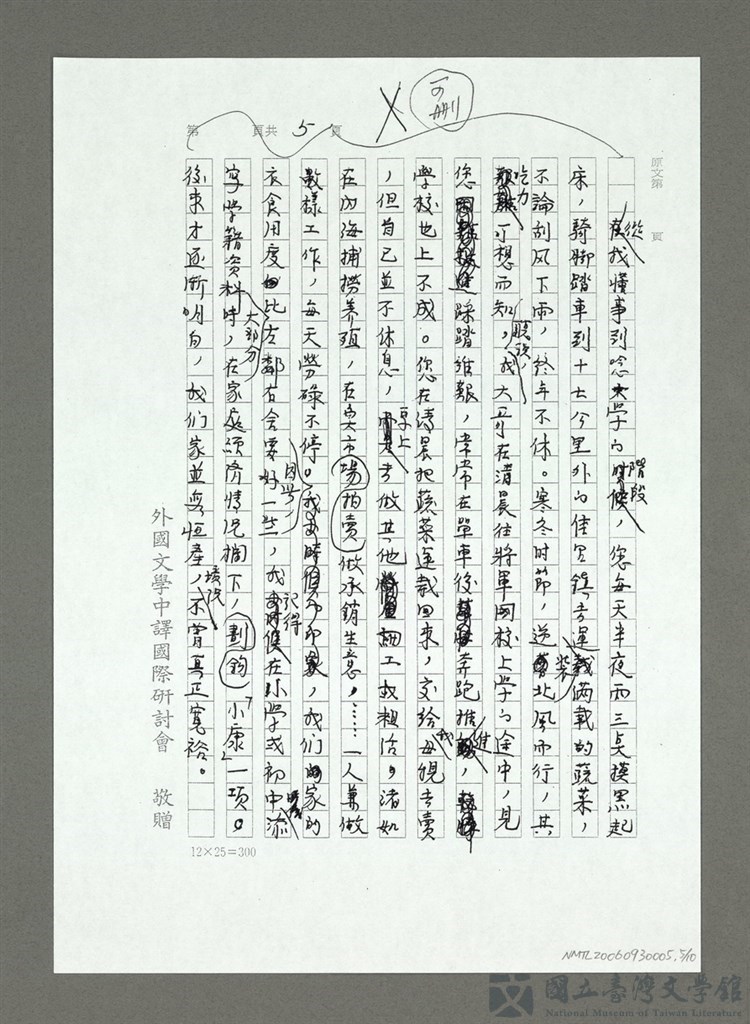 可刪
第 頁共 5 頁
原文第 頁
從我懂事到唸大學的階段,您每天半夜兩三點摸黑起
床,騎脚踏車到十七公里外的佳里鎮去運裝滿載的蔬菜,
不論刮風下雨,終年不休。寒冬时節,逆著北風而行,其
吃力可想而知,我大哥在清晨往將軍國校上學的途中,見
您踩踏維艱,常常在單車後奔跑推進,
學校也上不成。您在清晨把蔬菜運載回來,交給母親去賣
,但自己並不休息,馬上去做其他細工或粗活,諸如
在內海捕撈養殖,在魚市場拍賣做承銷生意,……一人兼做
數樣工作,每天勞碌不停。因此,我們家的
衣食用度比左鄰右舍要好一些,我記得在小學或初中添
寫學籍資料時,在家庭經濟情況欄下,大部分劃鉤「小康」一項。
後來才逐漸明白,我们家並無恆產,不曾真正寬裕。
外國文學中譯國際研討會 敬贈
12×25=300
NMTL20060930005,5/10
國立臺灣文學館
National Museum of Taiwan Literature